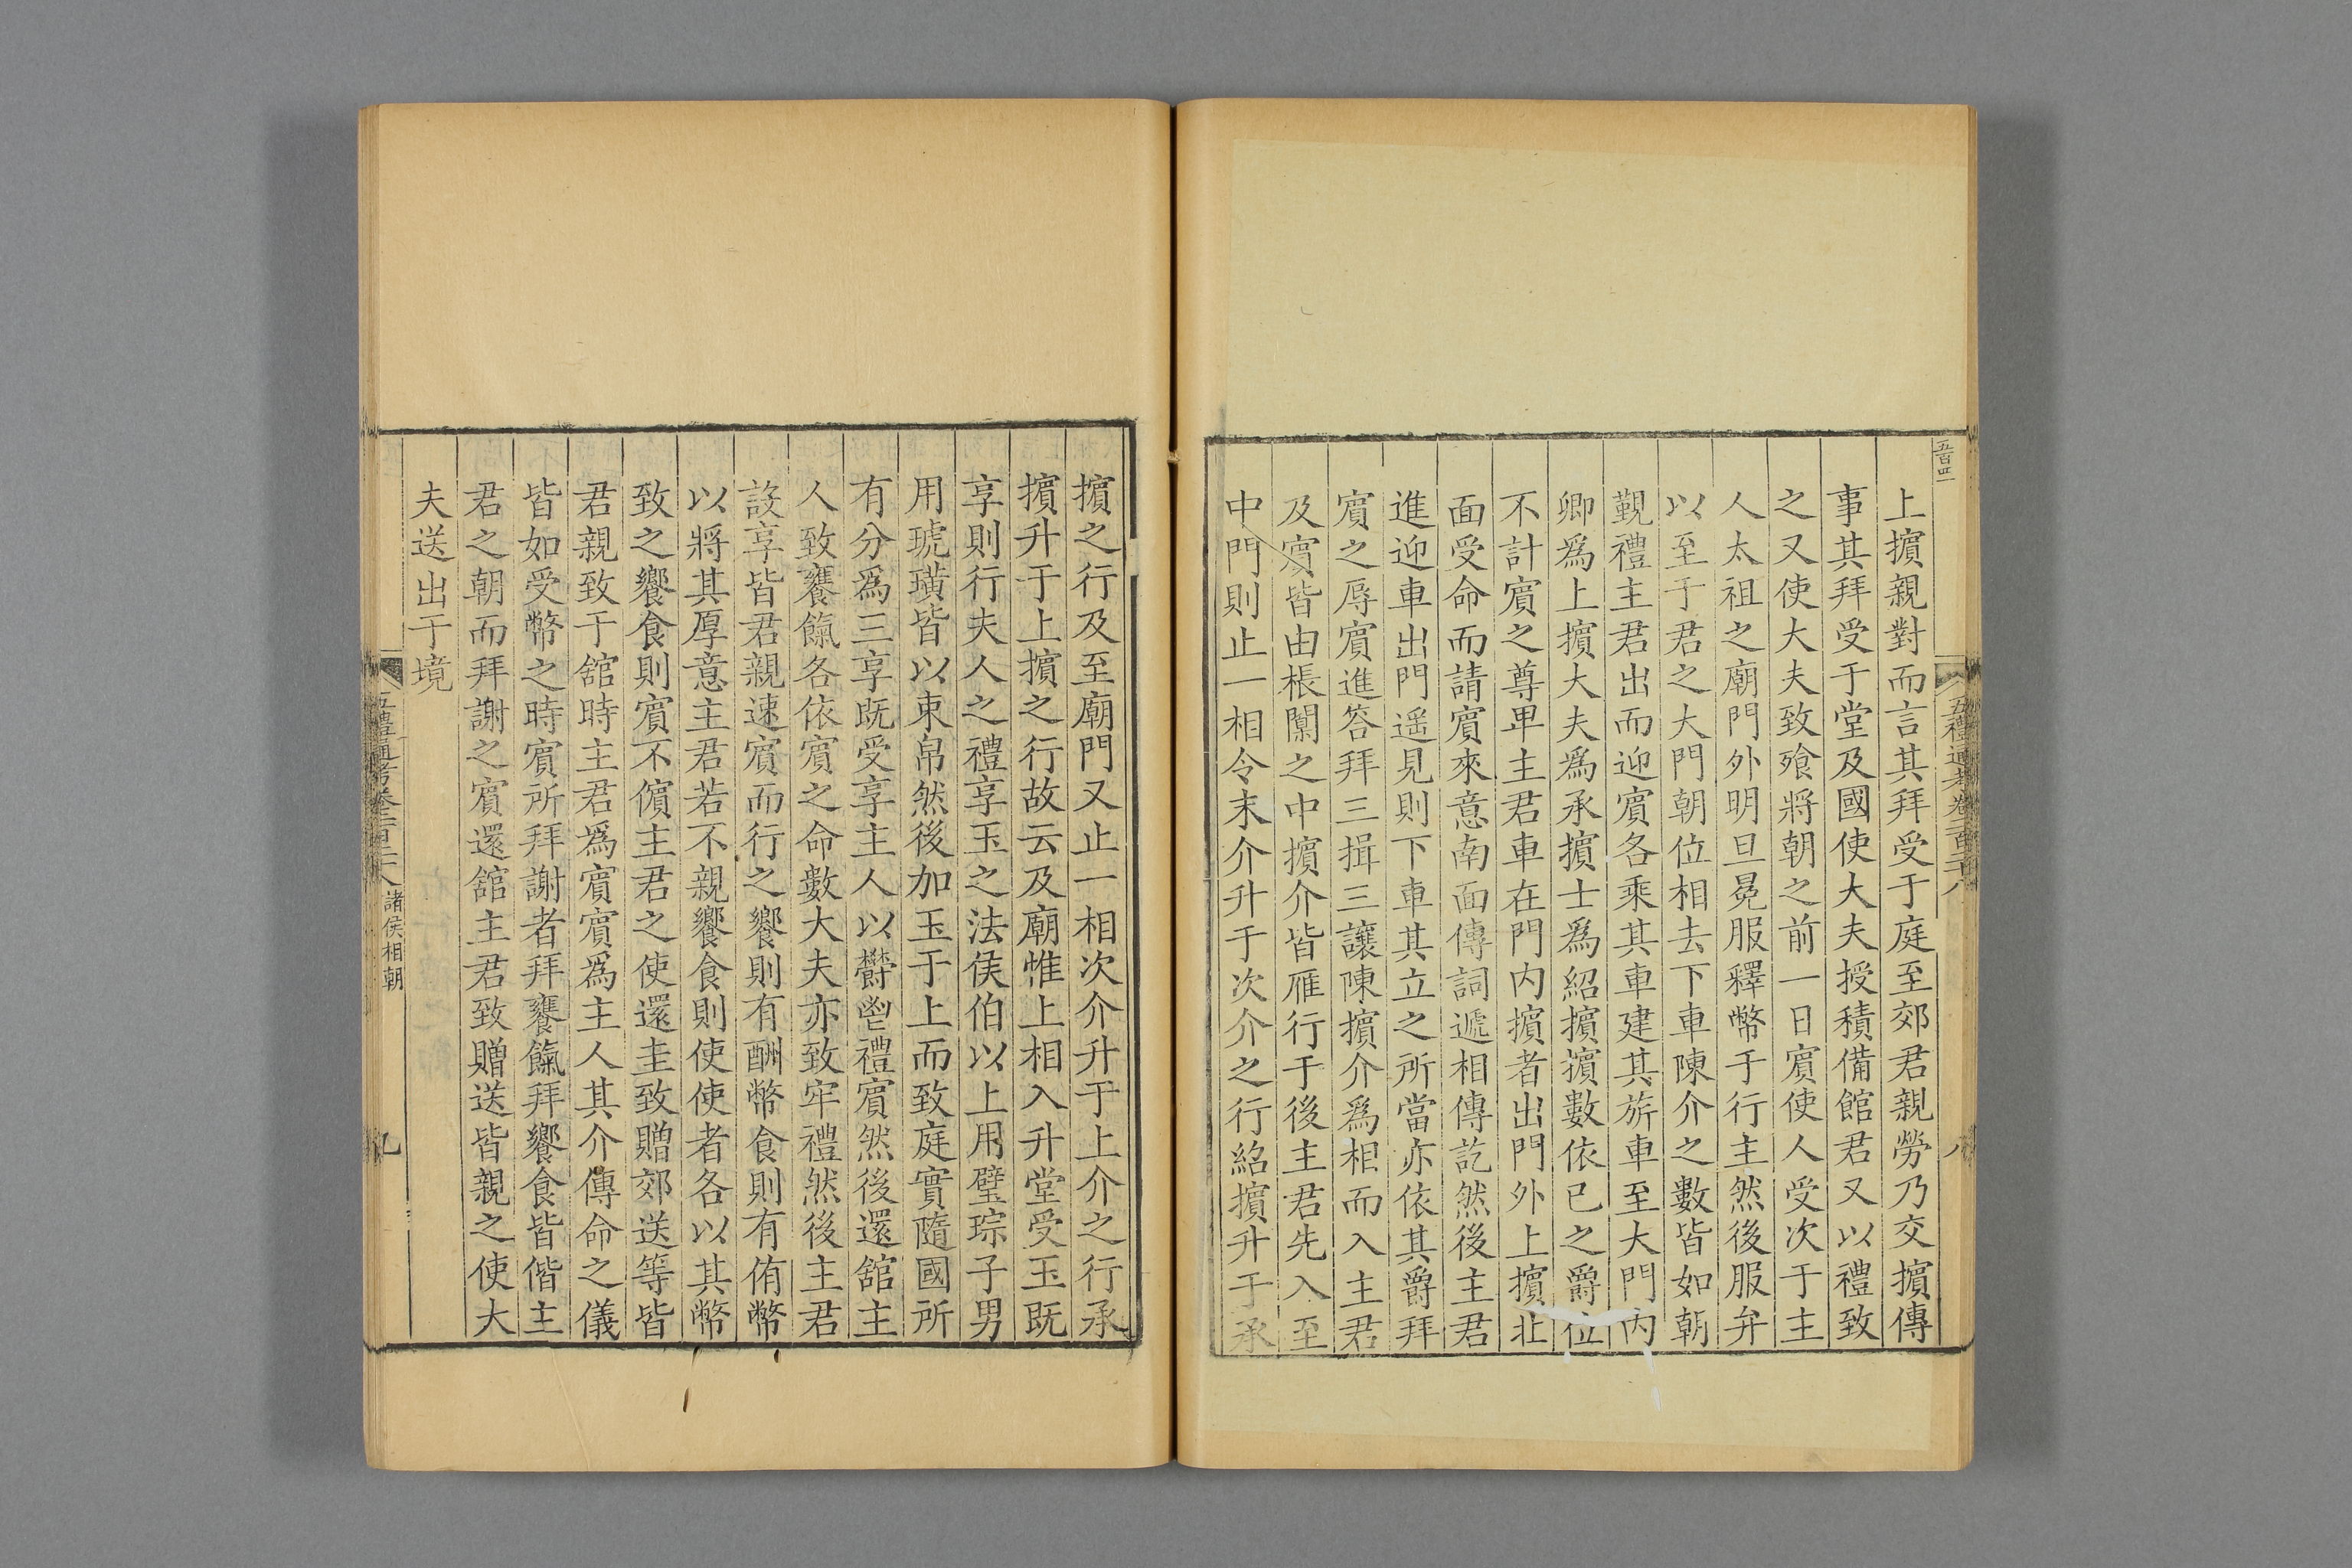 五百四
上擯親對而言其拜受于庭至郊君親勞乃交擯傳
事其拜受于堂及國使大夫授積備館君又以禮致
之又使大夫致飱將朝之前一日賓使人受次于主
人太祖之廟門外明旦冕服釋幣于行主然後服弁
以至于君之大門朝位相去下車陳介之數皆如朝
覲禮主君出而迎賓各乘其車建其旂車至大門內
卿爲上擯大夫爲承擯士爲紹擯擯數依已之爵位
不計賓之尊卑主君車在門內擯者出門外上擯北
面受命而請賓來意南面傳詞遞相傳訖然後主君
進迎車出門遥見則下車其立之所當亦依其爵拜
賓之辱賓進答拜三揖三讓陳擯介爲相而入主君
及賓皆由棖闑之中擯介皆雁行于後主君先入至
中門則止一相令末介升于次介之行紹擯升于承
五禮通考卷二百二十八
八
擯之行及至廟門又止一相次介升于上介之行承
擯升于上擯之行故云及廟惟上相入升堂受玉既
享則行夫人之禮享玉之法侯伯以上用璧琮子男
用琥璜皆以束帛然後加玉于上而致庭實隨國所
有分爲三享既受享主人以鬱鬯禮賓然後還舘主
人致饔餼各依賓之命數大夫亦致牢禮然後主君
設享皆君親速賓而行之饗則有酬幣食則有侑幣
以將其厚意主君若不親饗食則使使者各以其幣
致之饗食則賓不儐主君之使還圭致贈郊送等皆
君親致于舘時主君爲賓賓爲主人其介傳命之儀
皆如受幣之時賓所拜謝者拜饔餼拜饗食皆偕主
君之朝而拜謝之賓還舘主君致贈送皆親之使大
夫送出于境
五禮通考卷二百二十八 諸侯相朝
九